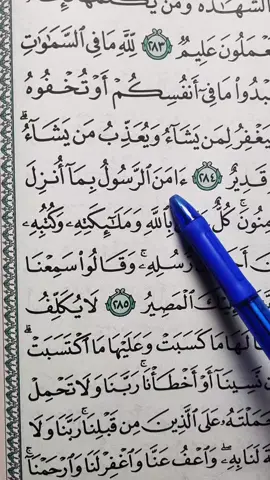 تَعْمَلُونَ عَلِيمٌ ٢٨٣ لِّلَّهِ مَا فِي السَّمَٰوَٰتِ
تُبْدُوا۟ مَا فِىٓ أَنفُسِكُمْ أَوْ تُخْفُوهُ
فَيَغْفِرُ لِمَن يَشَآءُ وَيُعَذِّبُ مَن يَشَآءُ ۗ
قَدِيرٌ ٢٨٤ ءَامَنَ ٱلرَّسُولُ بِمَآ أُنزِلَ
كُلٌّ بِٱللَّهِ وَمَلَٰٓئِكَتِهِۦ وَكُتُبِهِۦ
رُّسُلِهِۦ ۚ وَقَالُوا۟ سَمِعْنَا
ٱلْمَصِيرُ ٢٨٥ لَا يُكَلِّفُ
لَهَا مَا كَسَبَتْ وَعَلَيْهَا مَا ٱكْتَسَبَتْ ۗ
نَّسِينَآ أَوْ أَخْطَأْنَا ۚ رَبَّنَا وَلَا تَحْمِلْ
حَمَلْتَهُۥ عَلَى ٱلَّذِينَ مِن قَبْلِنَا ۚ رَبَّنَا وَلَا
لَنَا بِهِۦ ۖ وَٱعْفُ عَنَّا وَٱغْفِرْ لَنَا وَٱرْحَمْنَآ ۚ